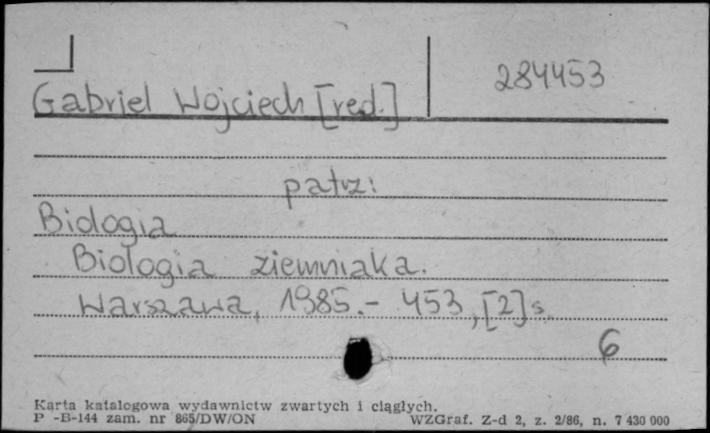 284453
Gabriel Wojciech [red.]
patrz:
Biologia
Biologia ziemniaka.
Warszawa, 1985.- 453, [2] s.
6
Karta katalogowa wydawnictw zwartych i ciągłych.
P -B-144 zam. nr 865/DW/ON WZGraf. Z-d 2, z. 2/86, n. 7 430 000